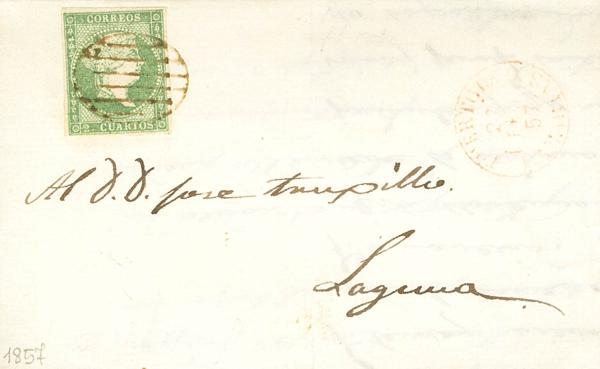 CORREOS
2 CUARTOS
57
Al D. D. Jose Truxillo.
Laguna
1857